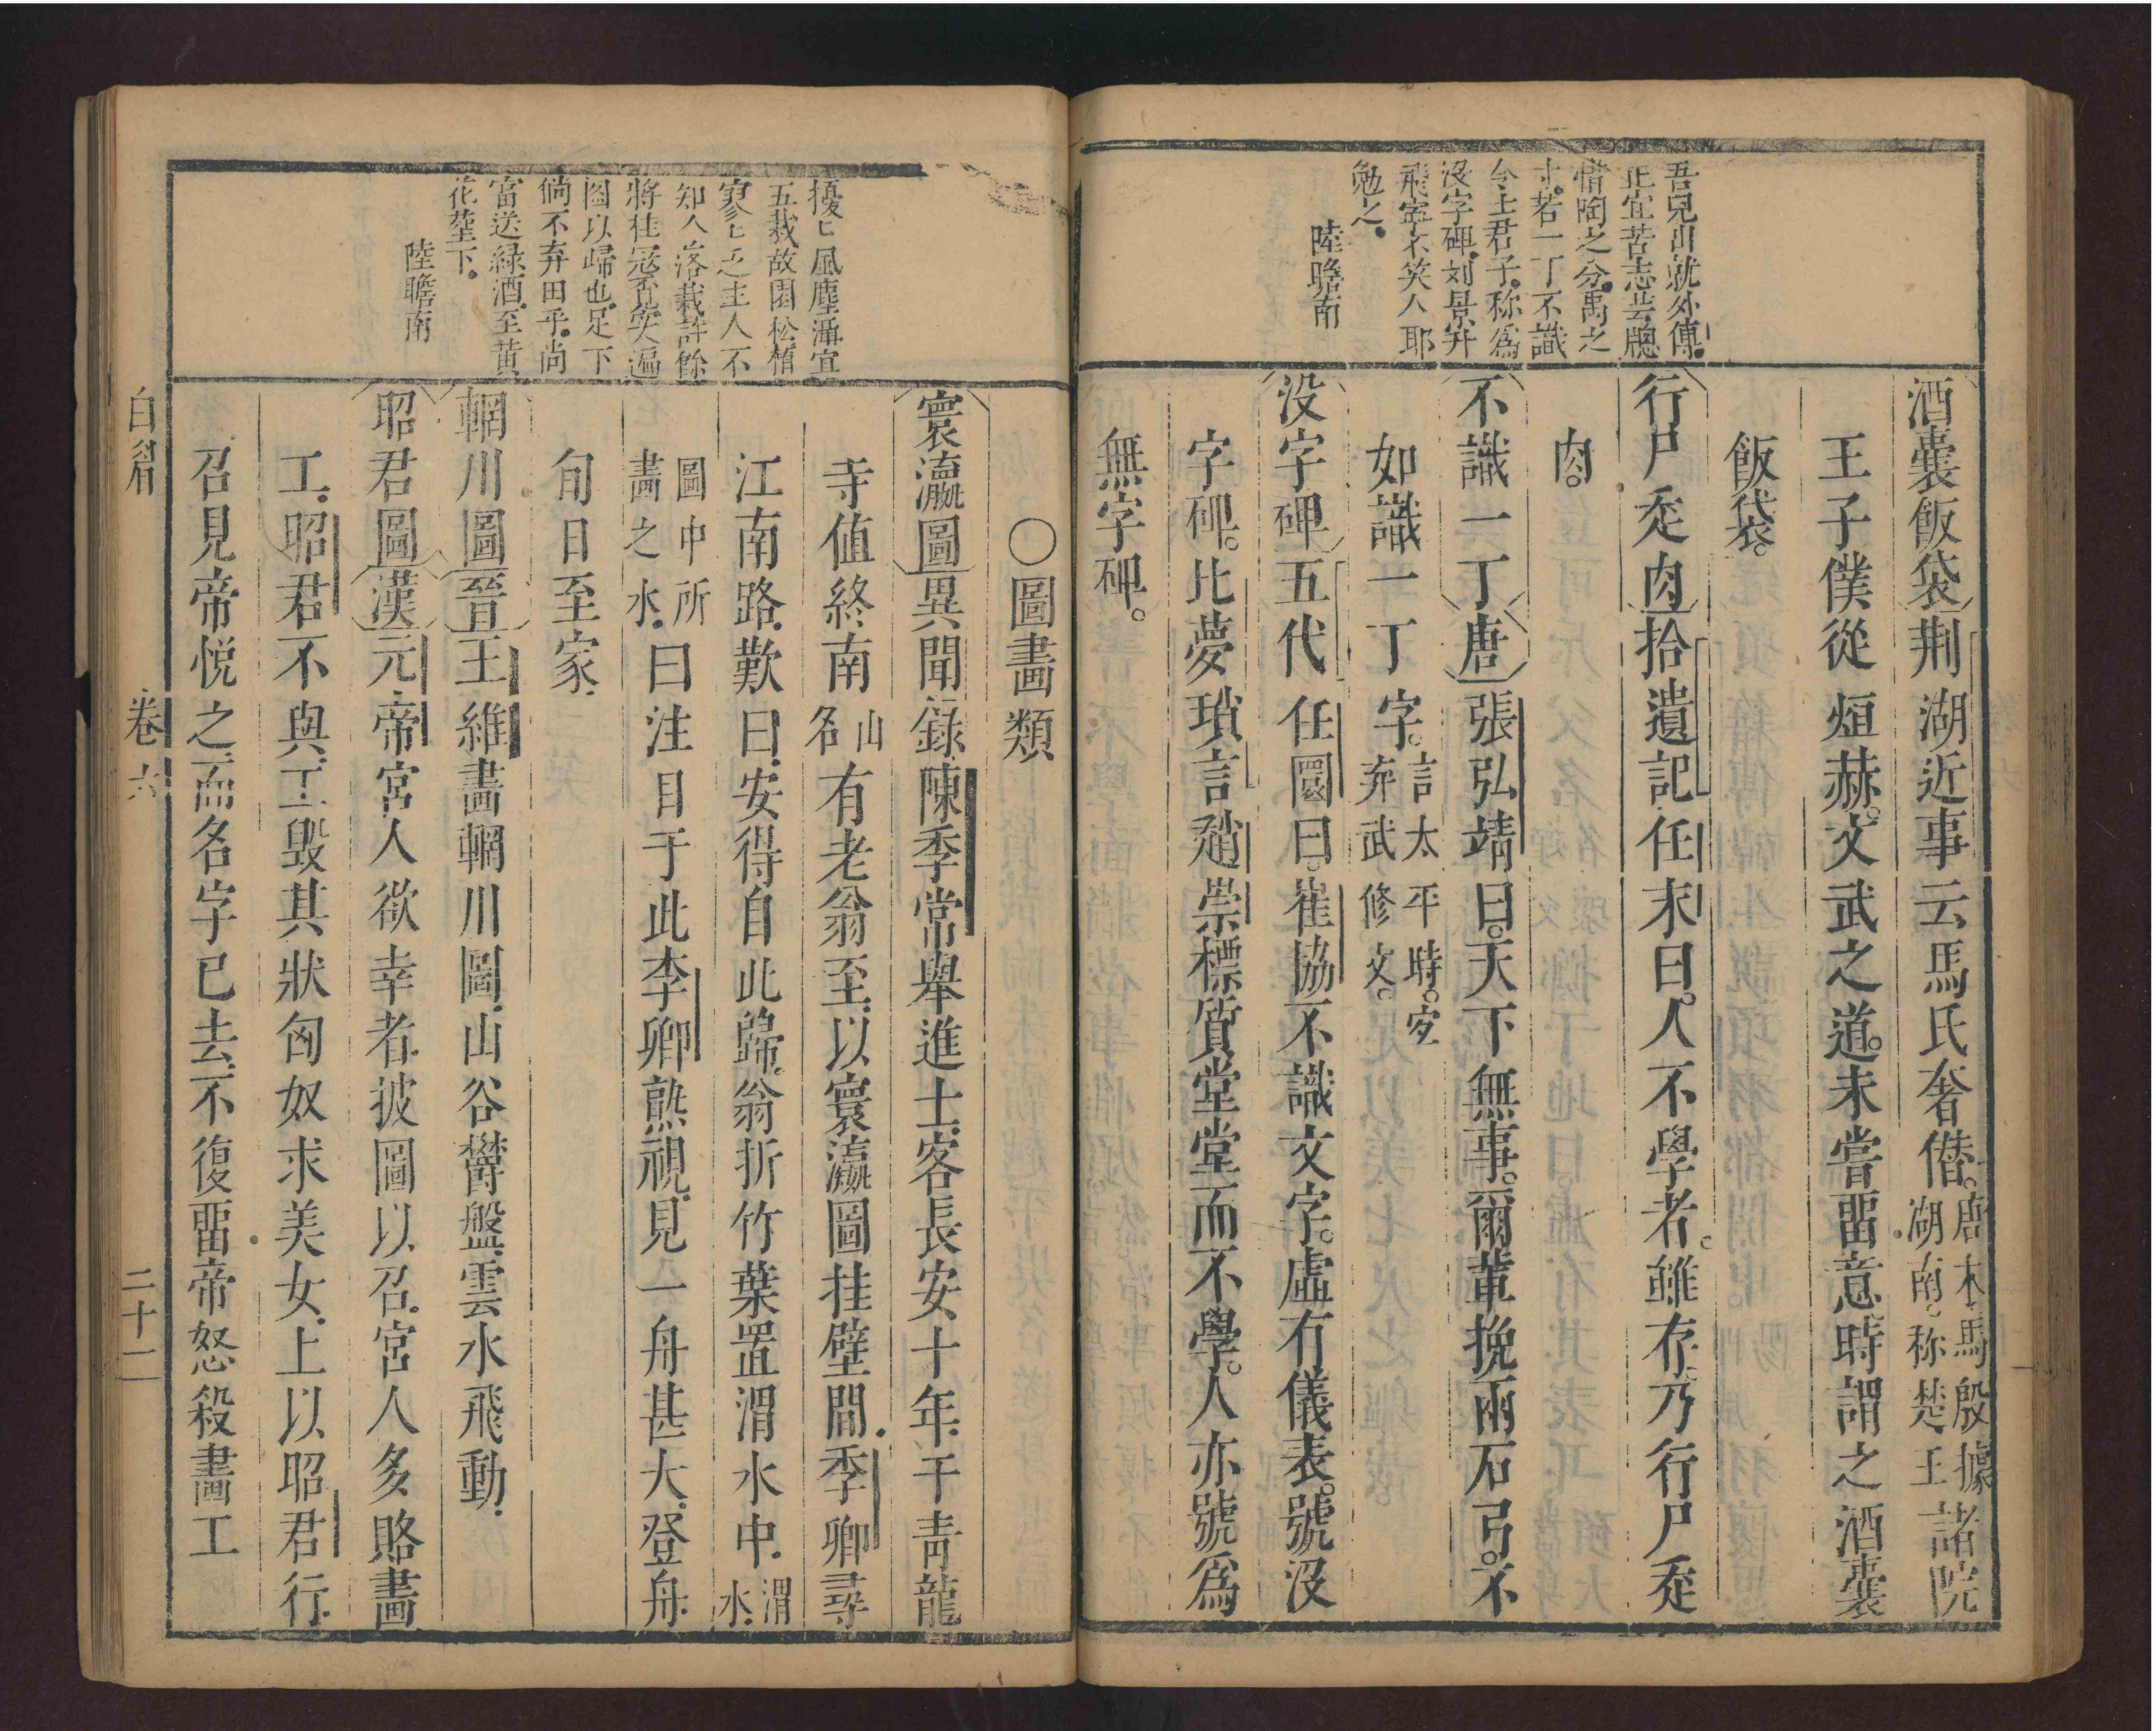 吾兒出就外傅
正宜苦志芸牕
惜陶之分禹之
寸若一丁不識
今上君子称爲
没字碑刘景升
飛寧不笑人耶
勉之
陸瞻南
酒囊飯袋荆湖近事云馬氏奢僭。唐末馬殷據湖南。称楚王諸院
王子僕從烜赫。文武之道。未嘗畱意。時謂之酒囊
飯袋。
行尸㱔肉拾遺記任末曰。人不學者。雖存。乃行尸㱔
肉。
不識一丁唐張弘靖曰。天下無事。爾輩挽兩石弓。不
如識一丁字。言太平時。宜弃武修文。
没字碑五代任圜曰。崔協不識文字。虛有儀表。號没
字碑。北夢瑣言趙崇標質堂堂。而不學。人亦號爲
無字碑。
擾匕風塵滿宜
五栽故園松楦
寥匕乏主人不
知人落栽許餘
將桂冠
圖以歸也足下
倘不弃田乎尚
當送緑酒至黄
花堇下
陸瞻南
〇圖畫類
寰瀛圖異聞錄陳季常舉進士客長安十年于青龍
寺值終南山名有老翁至以寰瀛圖挂壁間季卿尋
江南路歎曰安得自此歸翁折竹葉置渭水中渭水
圖中所畫之水曰注目于此李卿熟視見一舟甚大登舟
旬日至家
輞川圖晉王維畫輞川圖山谷欝盤雲水飛動
昭君圖漢元帝宮人欲幸者披圖以召宮人多賂畫
工昭君不與工毀其狀匈奴求美女上以昭君行
召見帝悦之而名字已去不復畱帝怒殺畫工
白眉
卷六
二十一